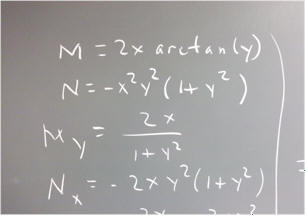 M = 2x arctan(y)
N = -x²y²(1+y²)
My = 2x / 1+y²
Nx = -2xy²(1+y²)